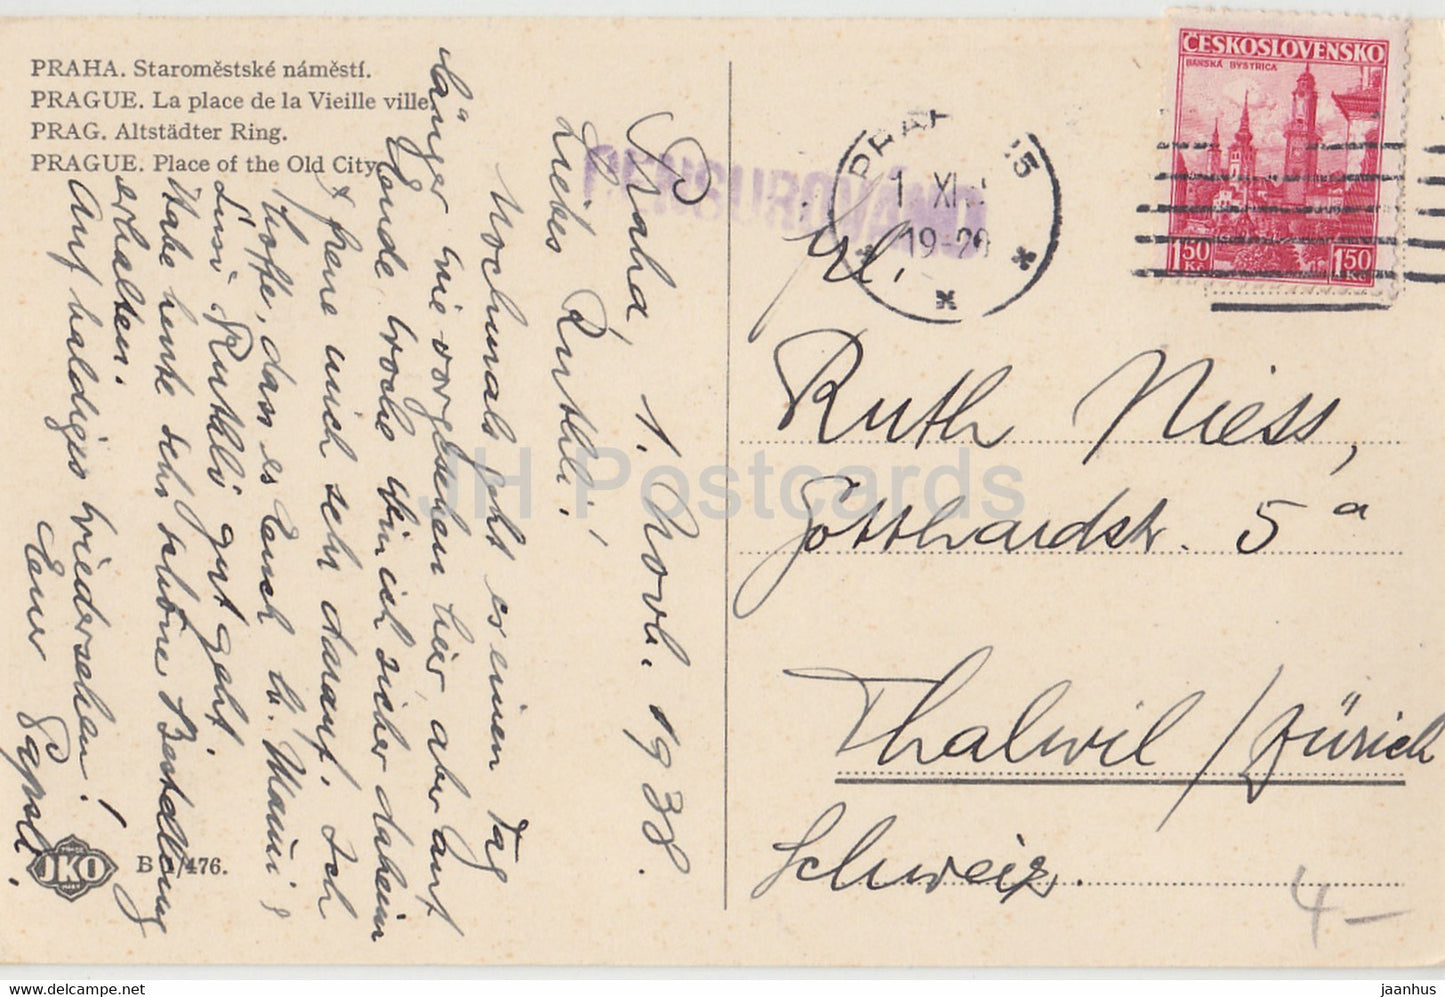 PRAHA. Staroměstské náměstí.
PRAGUE. La place de la Vieille ville.
PRAG. Altstädter Ring.
PRAGUE. Place of the Old City.
Praha, 1. Novb. 1938.
Liebes Rüthli!
Nochmals geht es einen Tag
länger wie vorgesehen hier, aber auf
Ende Woche bin ich sicher daheim
& freue mich sehr darauf. Ich
hoffe, dass es Euch b. Mami &
Susi Ruthli gut geht.
Habe heute sehr schöne Bestellung
erhalten.
Auf baldiges Wiedersehen!
Euer Papali.
JKO
B 476.
PRAHA 25
1 XI
19-20
ČESKOSLOVENSKO
BANSKÁ BYSTRICA
1.50 Kč 1.50 Kč
Frl.
Ruth Niess,
Gotthardstr. 5a
Thalwil / Zürich
Schweiz.
4-
JH Postcards
www.delcampe.net
jaanhus